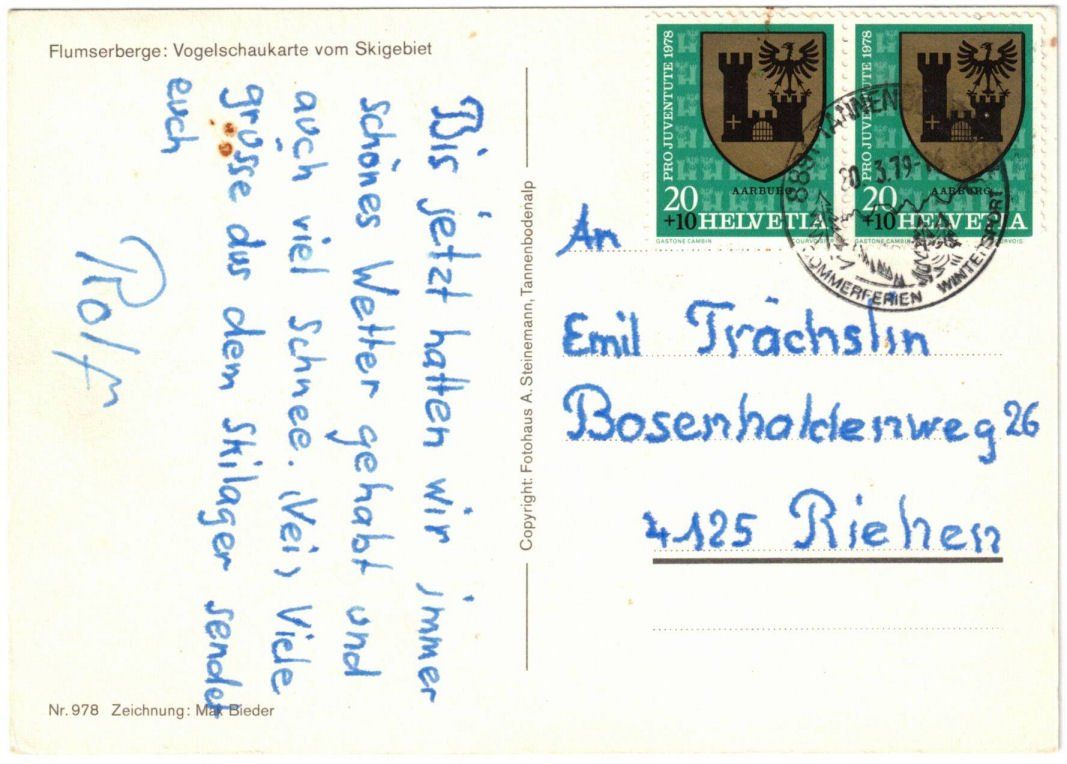 Flumserberge: Vogelschaukarte vom Skigebiet
Bis jetzt hatten wir immer
schönes Wetter gehabt und
auch viel Schnee. Viele
grüsse aus dem Skilager sendet
euch
Rolf
Nr. 978 Zeichnung: Max Bieder
Copyright: Fotohaus A. Steinemann, Tannenbodenalp
PRO JUVENTUTE 1978
AARBURG
20
+10 HELVETIA
GASTONE CAMBIN COURVOISIER
PRO JUVENTUTE 1978
AARBURG
20
+10 HELVETIA
GASTONE CAMBIN
TANNEN
3.79
SOMMERFERIEN WINTERSPORT
An
Emil Trächslin
Bosenhaldenweg 26
4125 Riehen